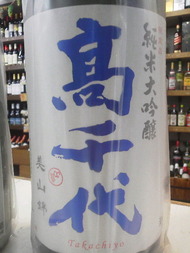 純米大吟醸
髙千代
美山錦
Takachiyo